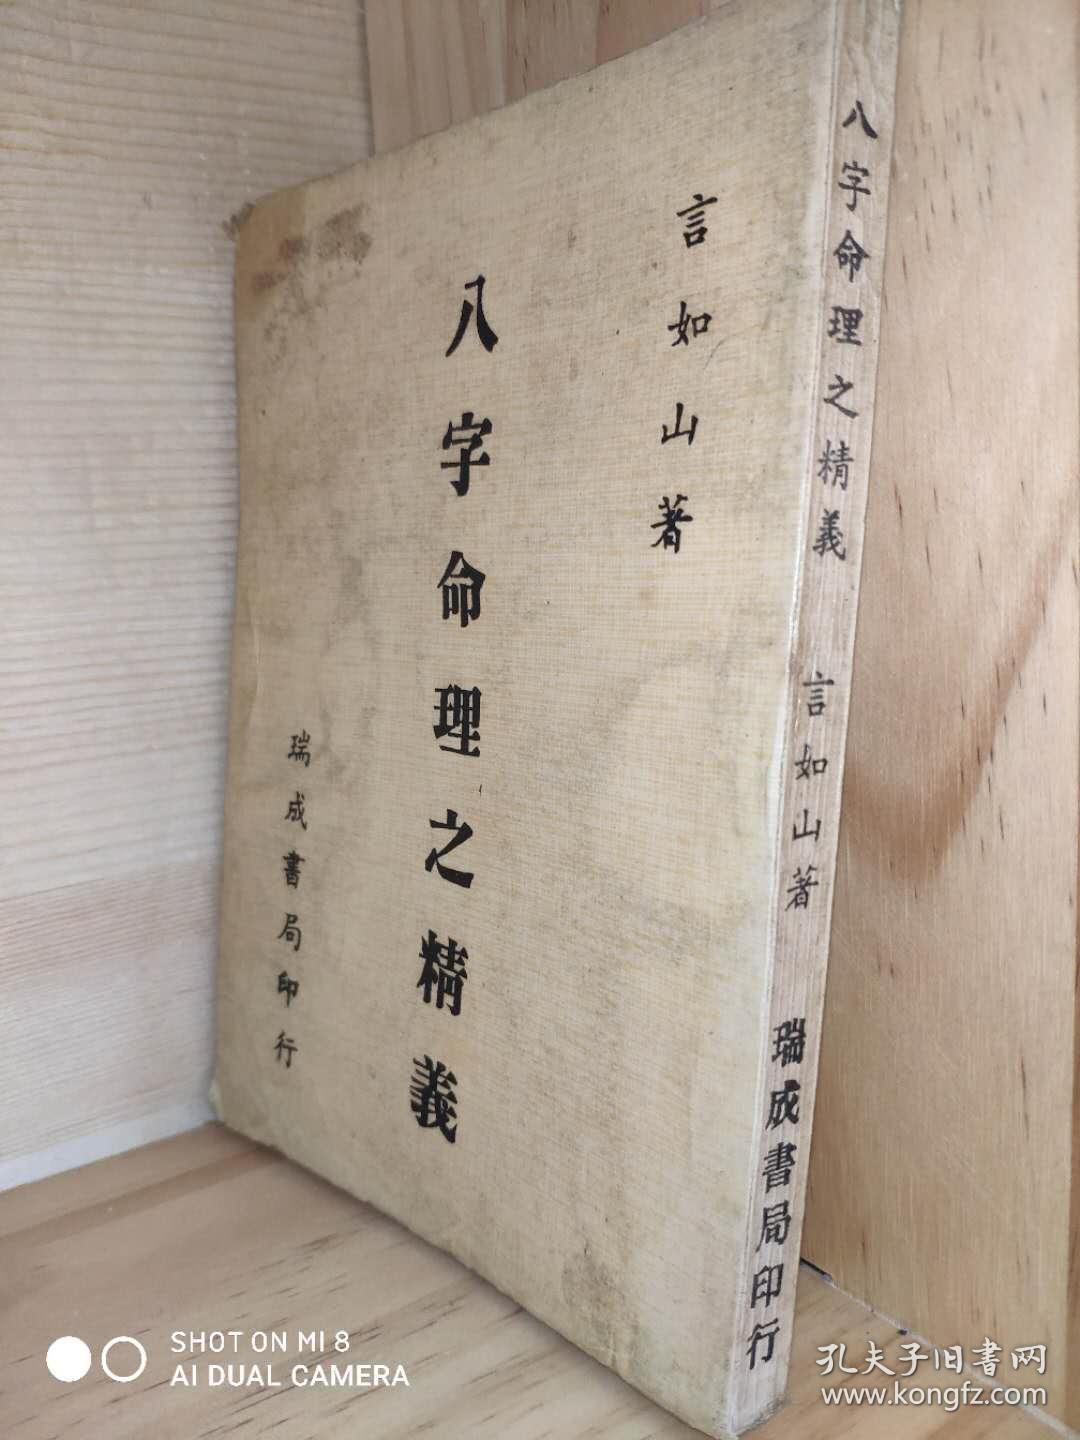 言如山著
八字命理之精義
瑞成書局印行
八字命理之精義 言如山著 瑞成書局印行
SHOT ON MI 8
AI DUAL CAMERA
孔夫子旧書网
www.kongfz.com